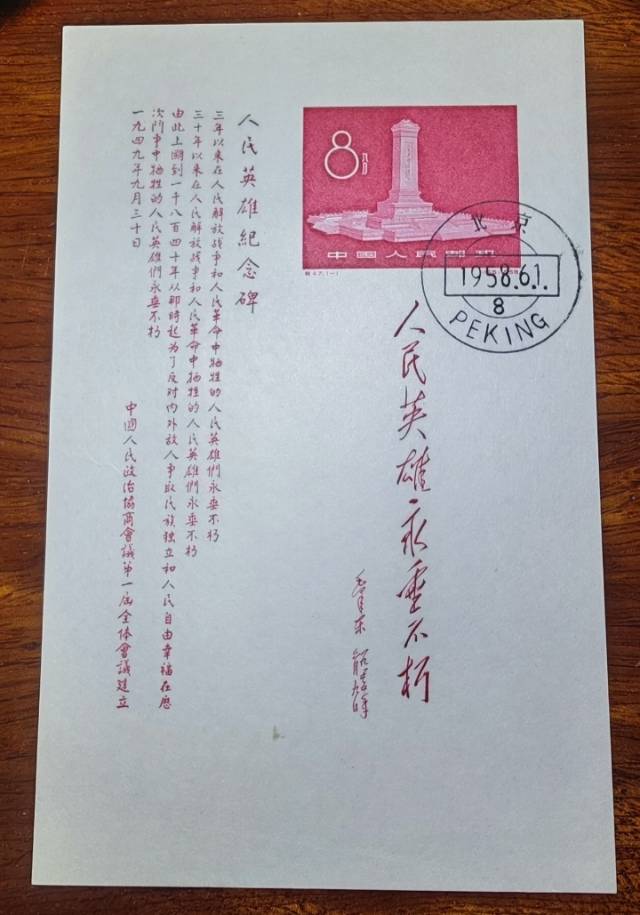 8分
中國人民郵政
北京
1958.6.1.
8
PEKING
人民英雄永垂不朽
毛泽东
人民英雄紀念碑
三年以来在人民解放战争和人民革命中牺牲的人民英雄們永垂不朽
三十年以来在人民解放战争和人民革命中牺牲的人民英雄們永垂不朽
由此上溯到一千八百四十年从那時起为了反对内外敌人争取民族独立和人民自由幸福在历
次鬥争中牺牲的人民英雄們永垂不朽
一九四九年九月三十日
中國人民政治協商會議第一届全体會議建立